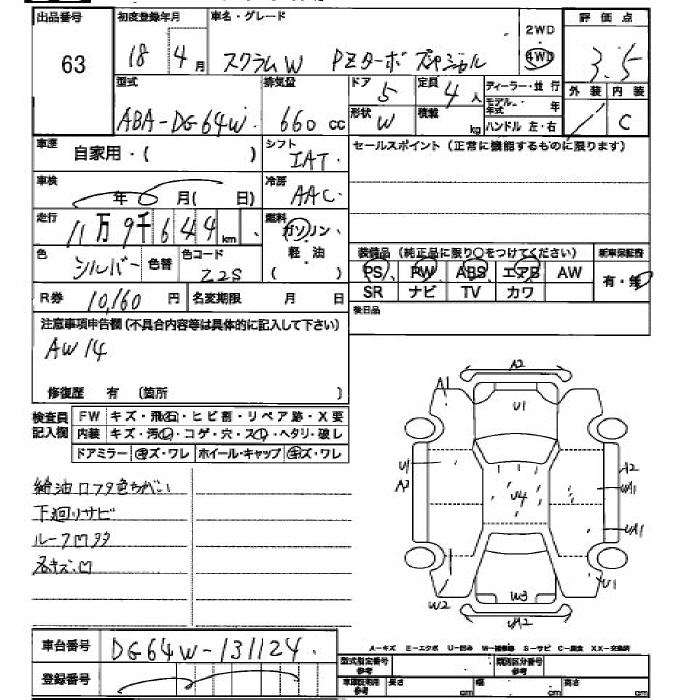 出品番号 初度登録年月 車名・グレード 2WD 4WD 評価点
63 18 4月 スクラムW PZターボ 3.5
型式 排気量 ドア 定員 ディーラー・並行 外装 内装
ABA-DG64W 660cc 5 4人 モデル年式 年
形状 積載 ハンドル 左・右
W kg C
車歴 自家用・( ) シフト IAT セールスポイント(正常に機能するものに限ります)
車検 年 月( 日) 冷房 AAC
走行 11万9千644km 燃料 ガソリン
軽・油
色 シルバー 色替 色コード Z2S
装備品(純正品に限り○をつけてください) 新車保証書
PS PW ABS エアB AW 有・無
SR ナビ TV カワ
R券 10,160円 名変期限 月 日 後日品
注意事項申告欄(不具合内容等は具体的に記入して下さい)
AW14
修復歴 有 〔箇所 〕
検査員記入欄 FW キズ・飛石・ヒビ割・リペア跡・X要
内装 キズ・汚レ・コゲ・穴・スレ・ヘタリ・破レ
ドアミラー キズ・ワレ ホイール・キャップ キズ・ワレ
給油口フタ色ちがい
下廻りサビ
ルーフ凹タタ
各キズ凹
A2
A1 U1
U1 A2
A3 U4 UA1
UA1
W2 W3 U1
UA2
車台番号 DG64W-131124
登録番号
A-キズ E-エクボ U-凹み W-補修跡 S-サビ C-腐食 XX-交換済
型式指定番号 参考 類別区分番号 参考
車庫証明用 参考 長さ cm 幅 cm 高さ cm